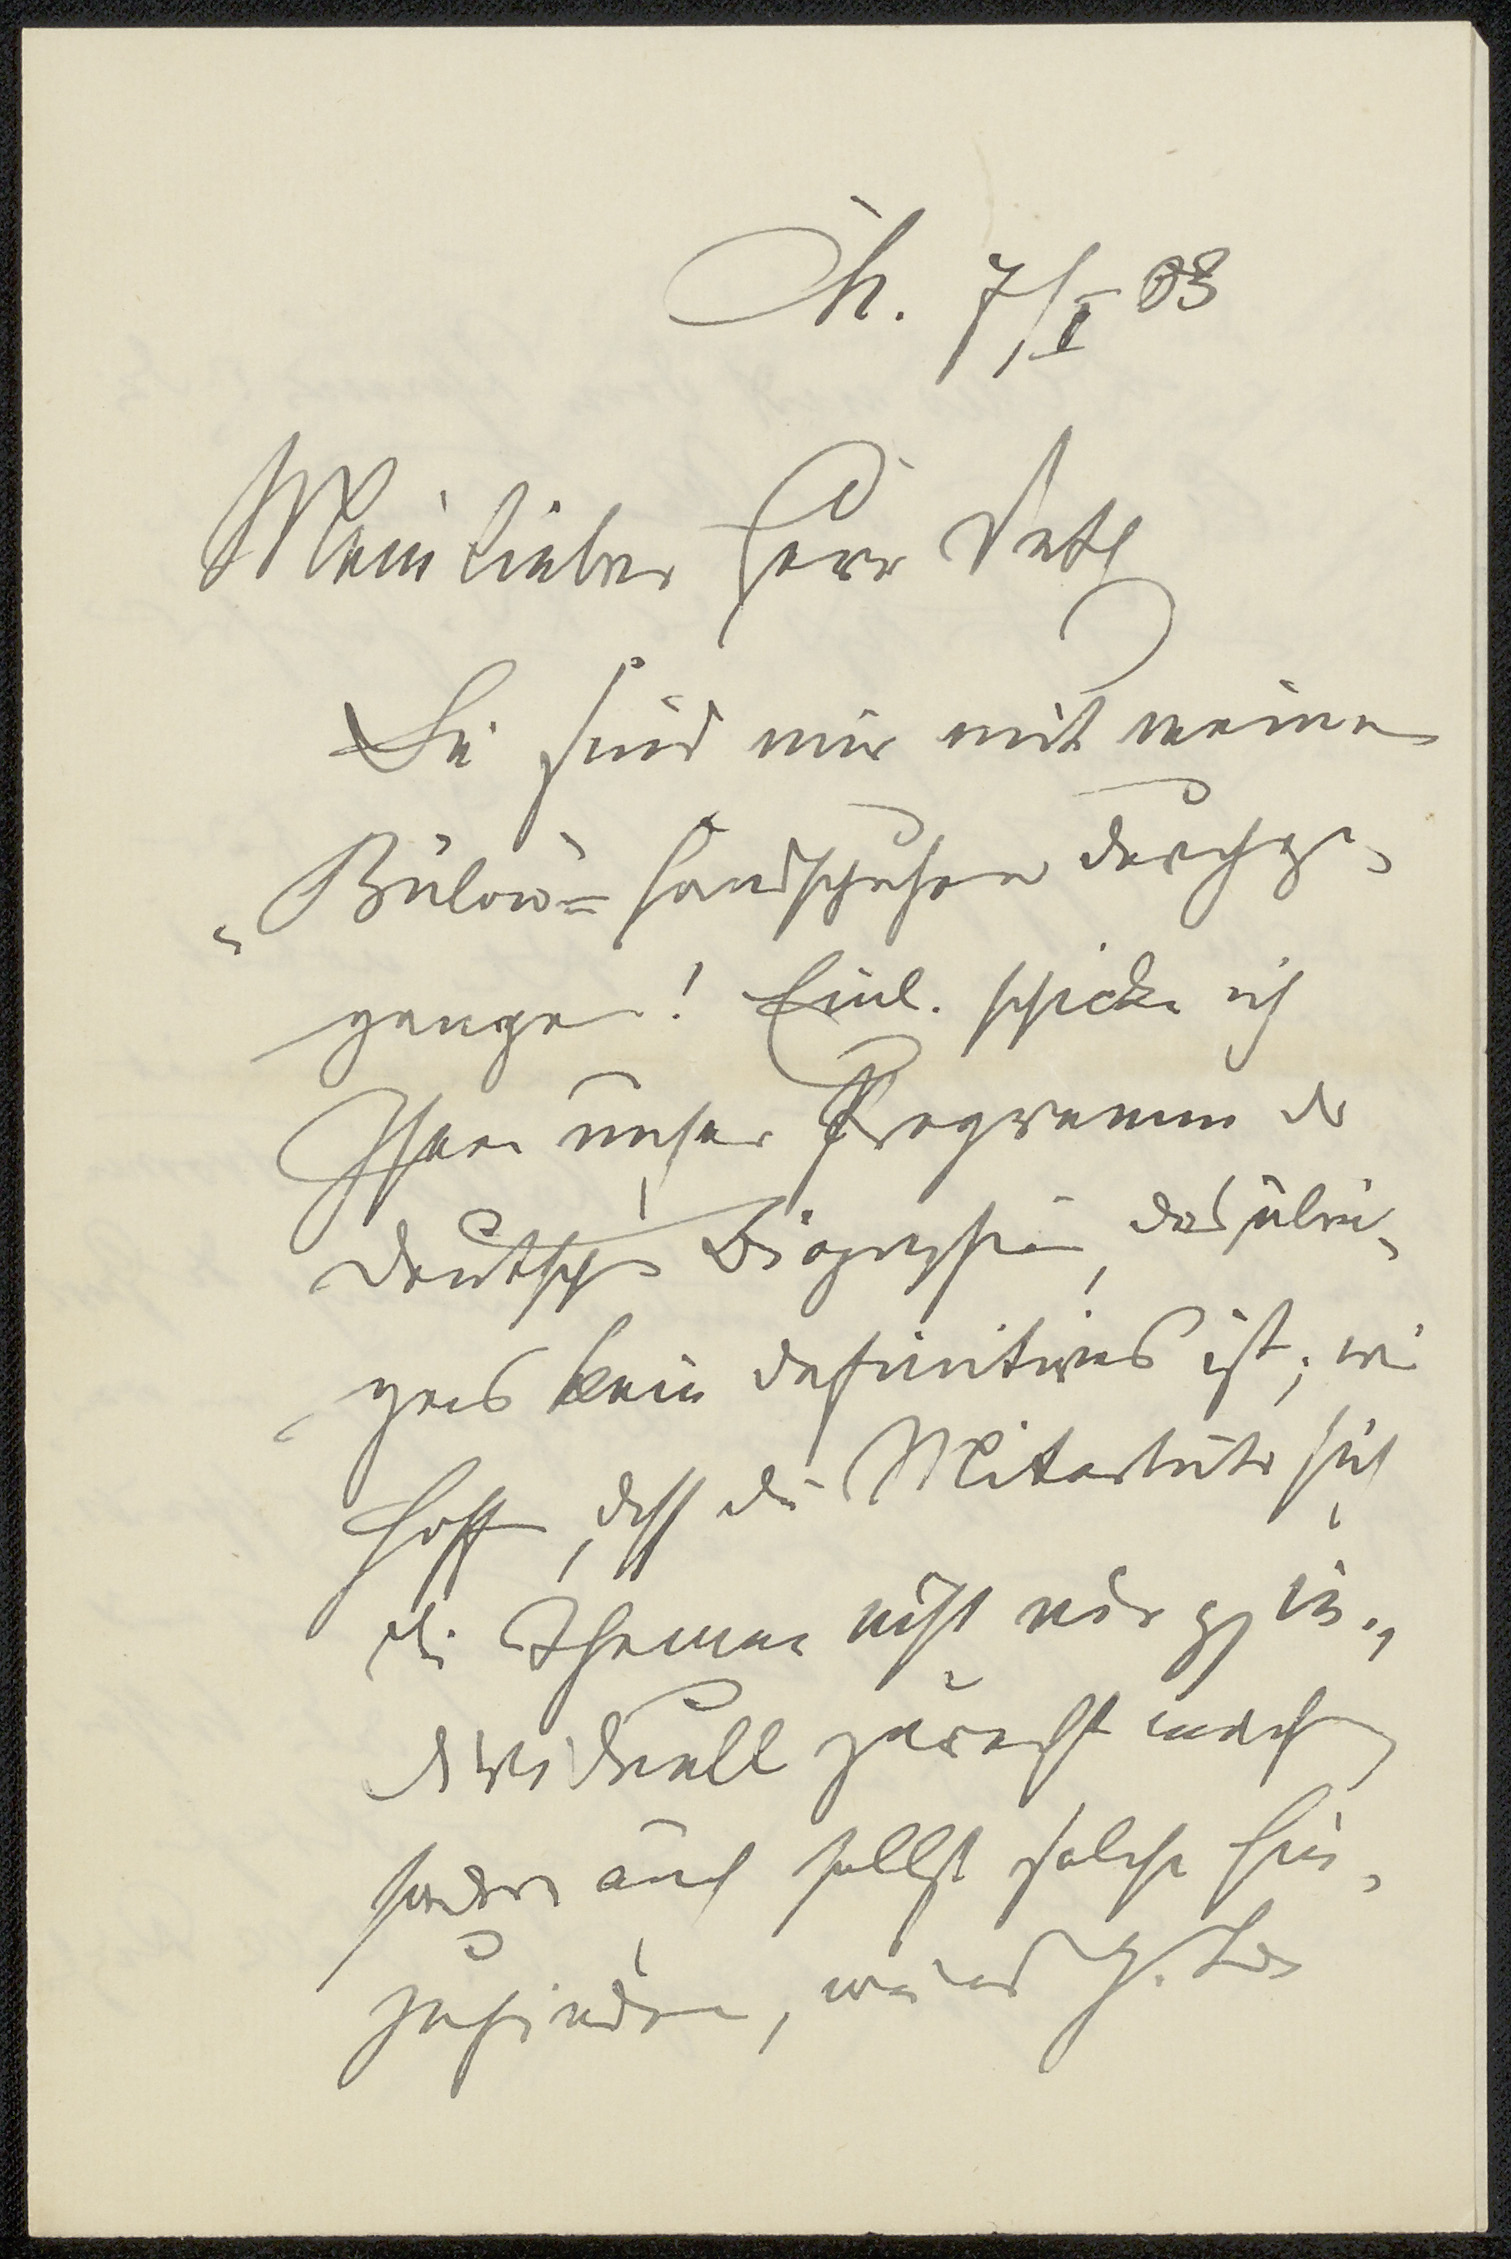 Ch. 7/I 03
Mein lieber Herr Veth
Sie sind mir mit meinen
Bülow=Handschuhen durchge-
gangen! Einl. schicke ich
Ihnen unser Programm der
deutschen Biographien, das übri-
gens kein definitives ist; wir
hoffen, dass die Mitarbeiter sich
die Themen nicht nur in-
dividuell zurecht machen
sondern auch selbst solche hin-
zufinden, während H.